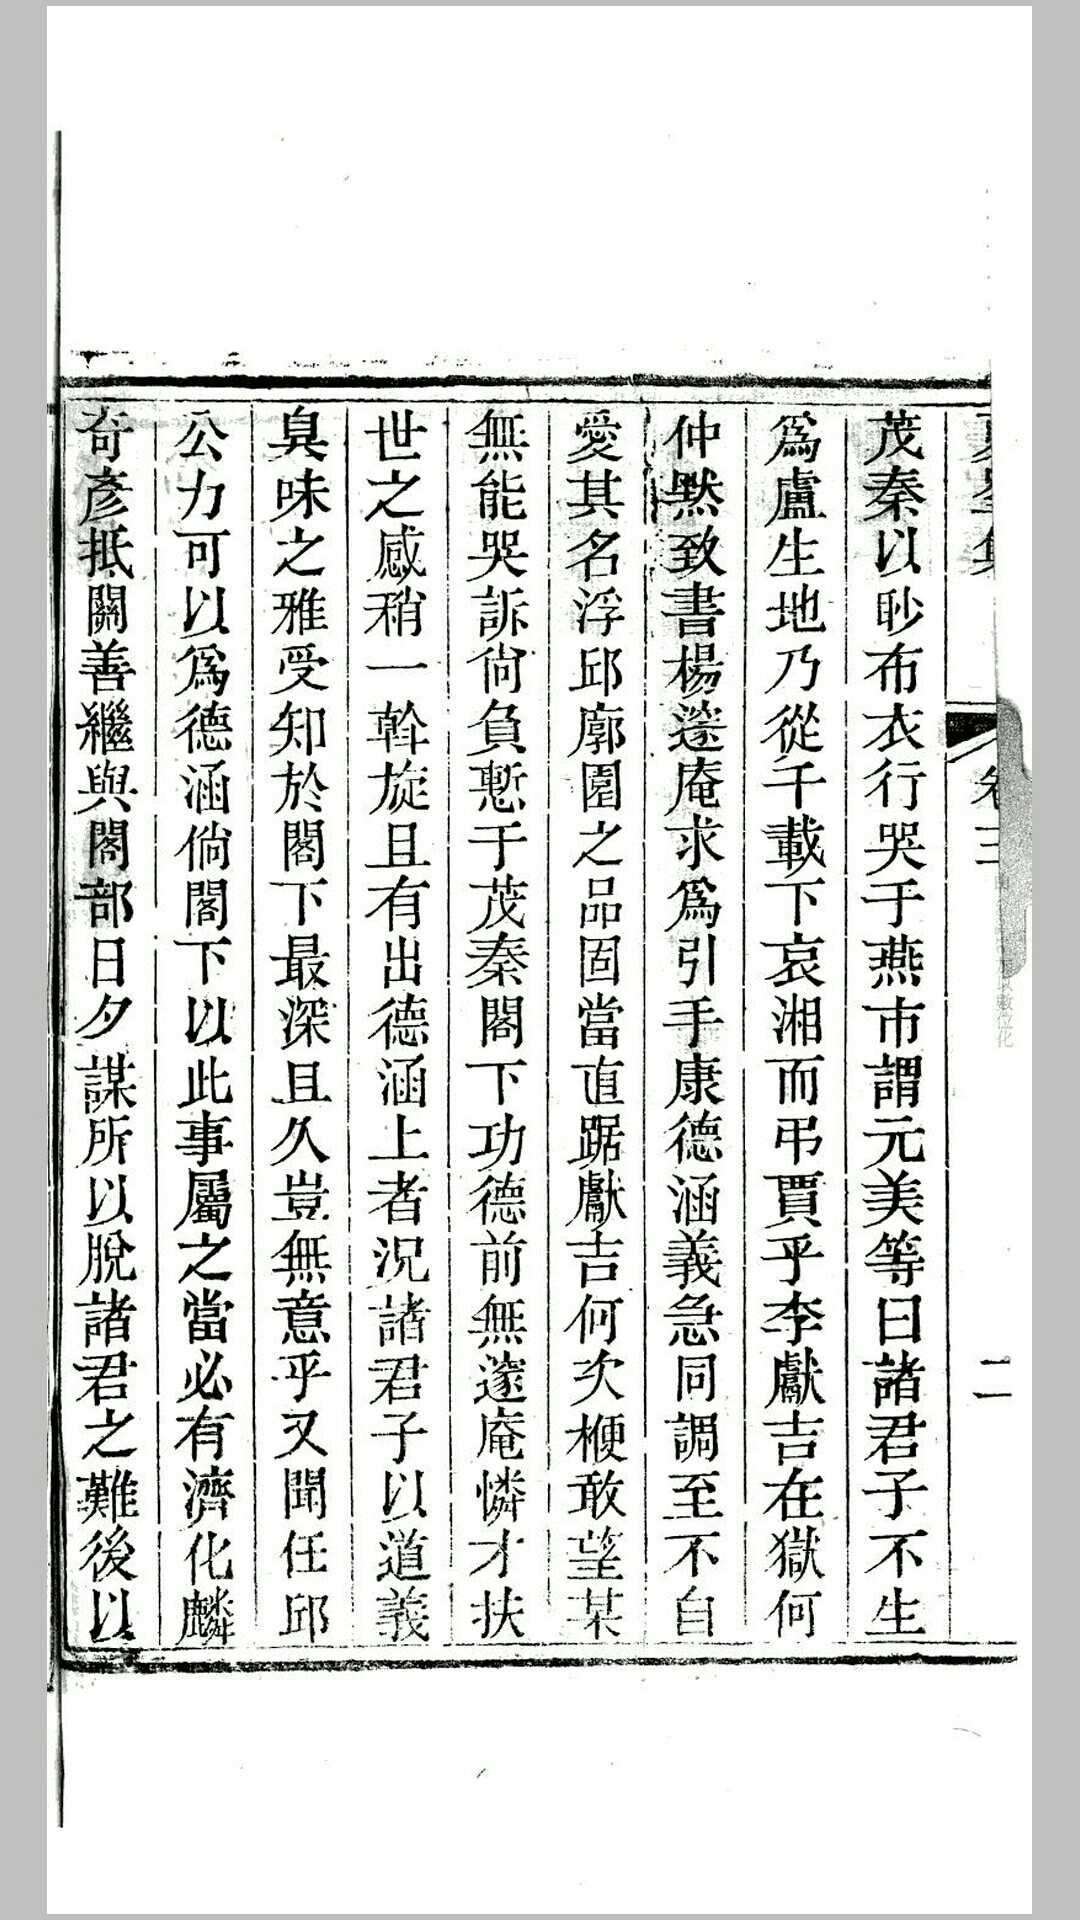 卷三
二
茂秦以眇布衣行哭于燕市謂元美等曰諸君子不生
爲盧生地乃從千載下哀湘而弔賈乎李獻吉在獄何
仲默致書楊邃庵求爲引手康德涵義急同調至不自
愛其名浮邱廓園之品固當直踞獻吉何次楩敢望某
無能哭訴尙負慙于茂秦閣下功德前無邃庵憐才扶
世之感稍一斡旋且有出德涵上者況諸君子以道義
臭味之雅受知於閣下最深且久豈無意乎又聞任邱
公力可以爲德涵倘閣下以此事屬之當必有濟化麟
奇彥抵關善繼與閣部日夕謀所以脫諸君之難後以